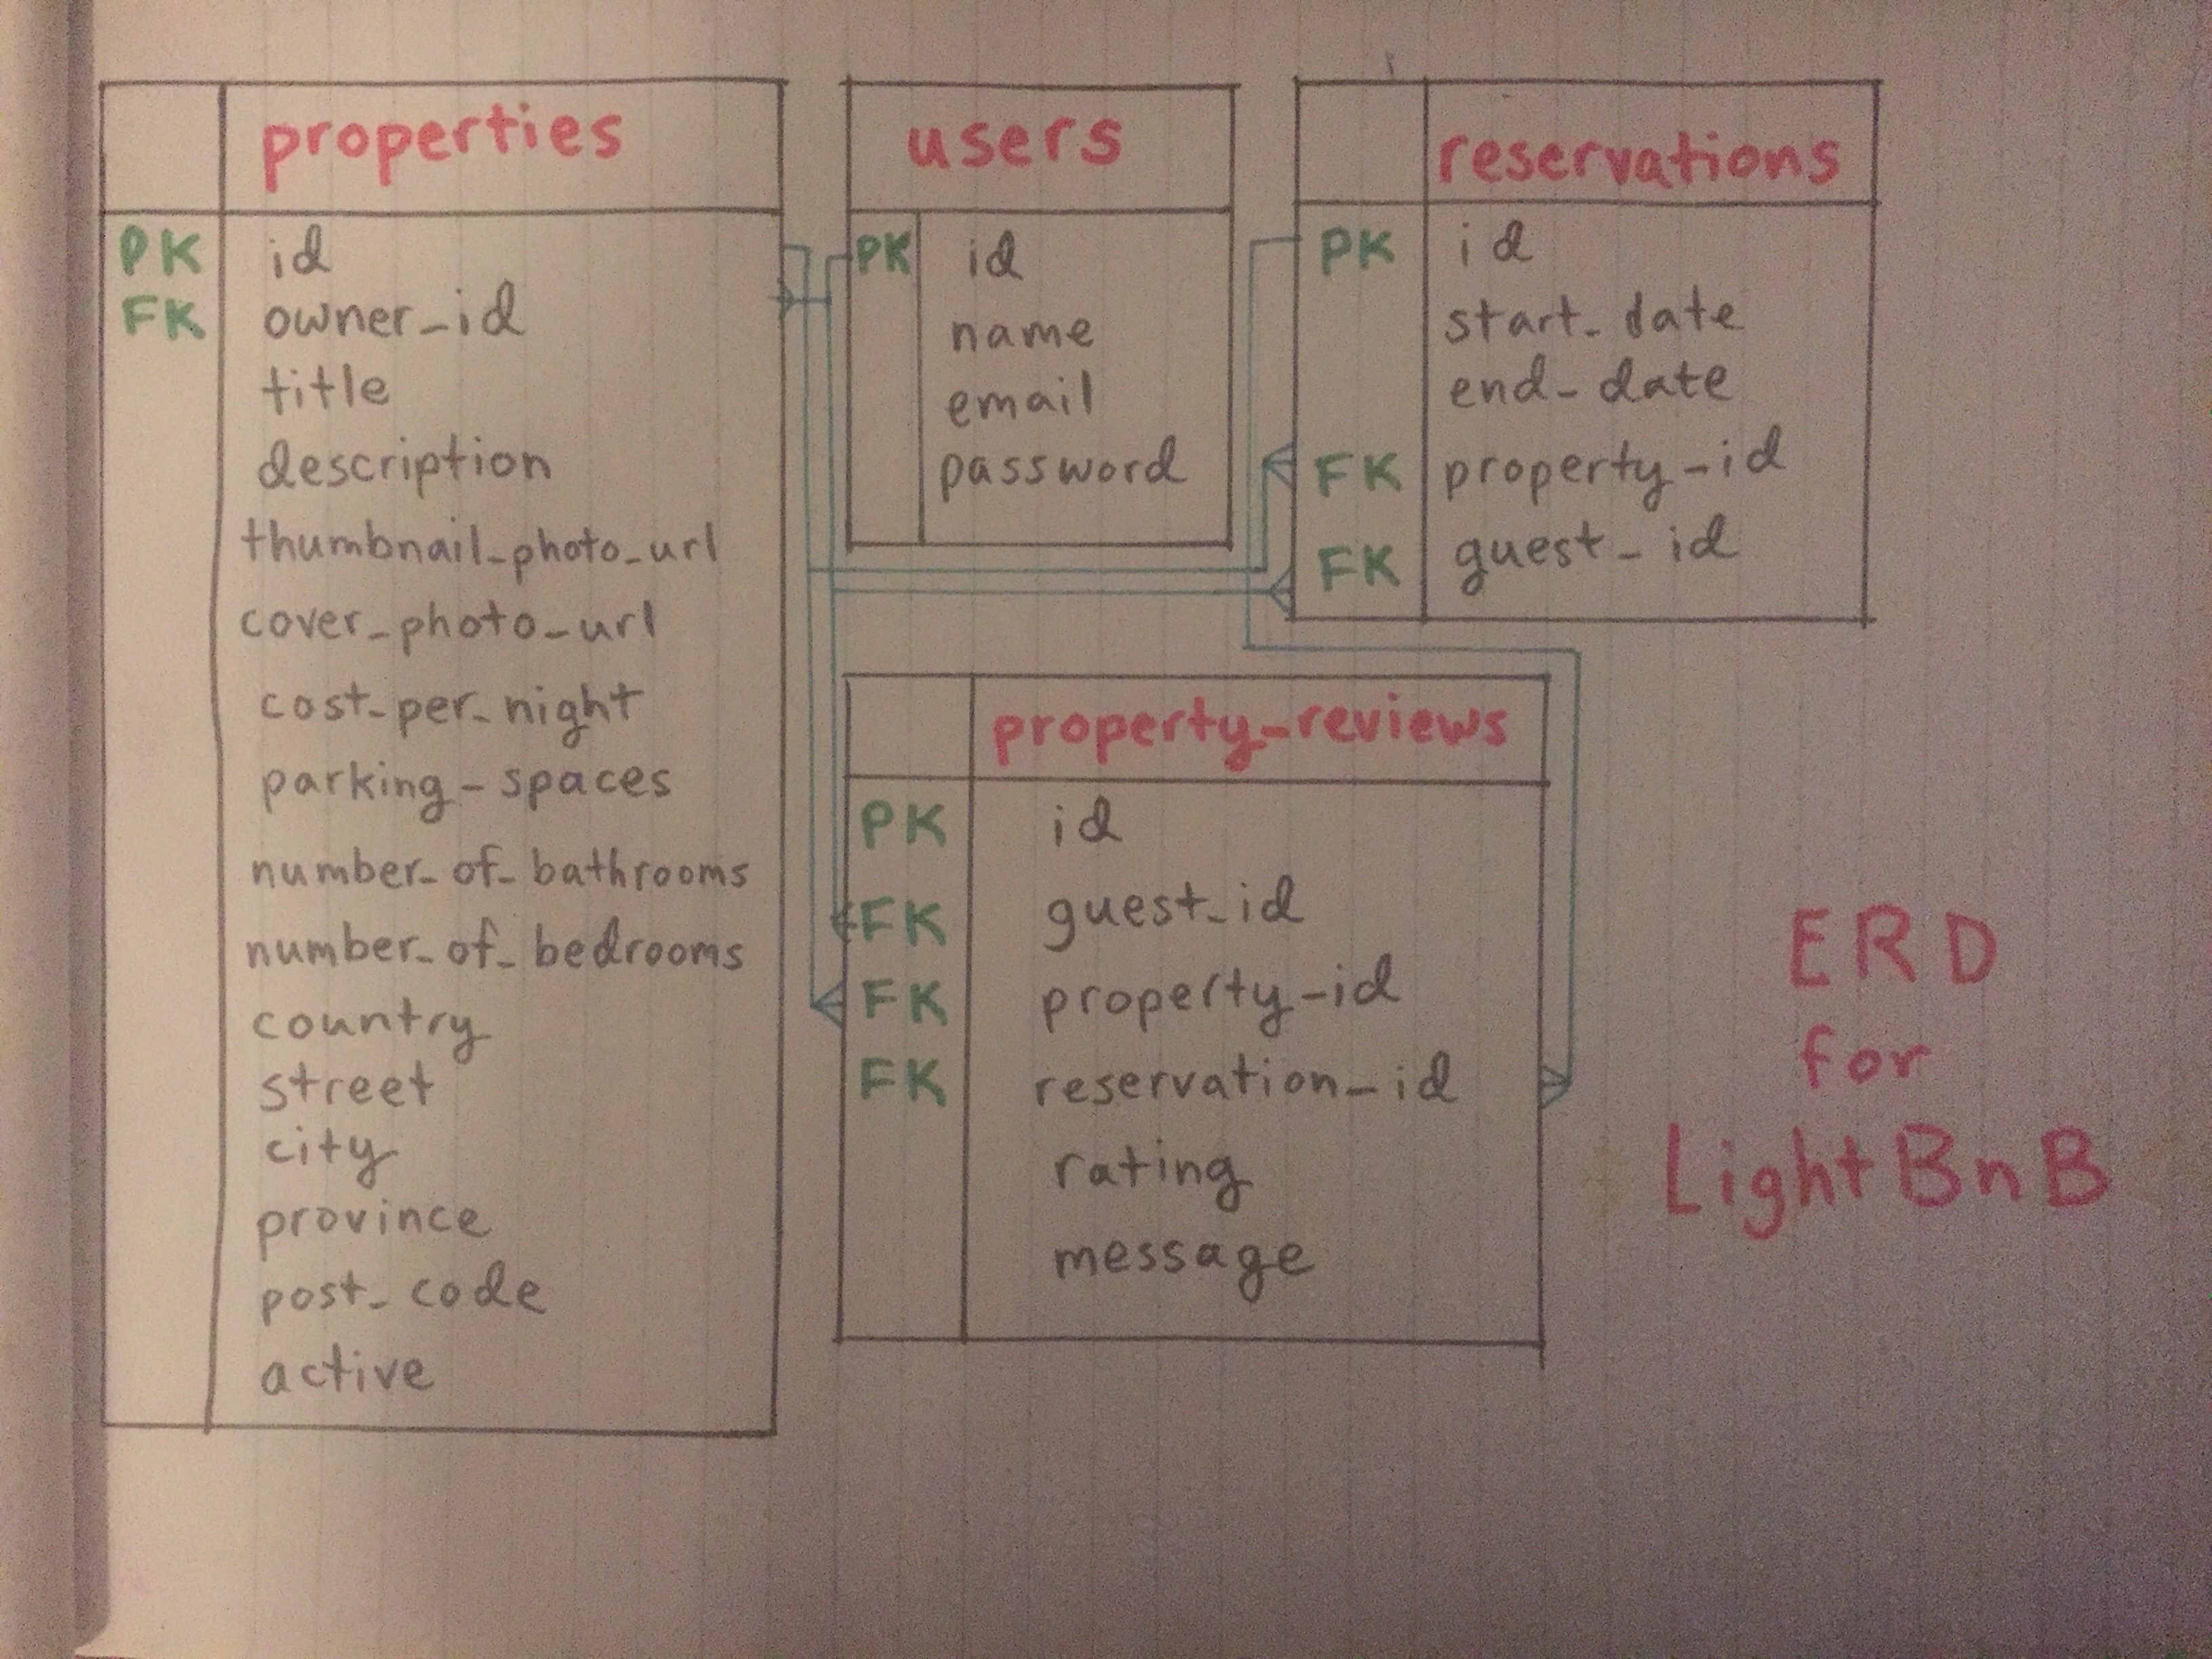 properties
PK id
FK owner_id
title
description
thumbnail_photo_url
cover_photo_url
cost_per_night
parking_spaces
number_of_bathrooms
number_of_bedrooms
country
street
city
province
post_code
active
users
PK id
name
email
password
reservations
PK id
start_date
end_date
FK property_id
FK guest_id
property_reviews
PK id
FK guest_id
FK property_id
FK reservation_id
rating
message
ERD
for
LightBnB